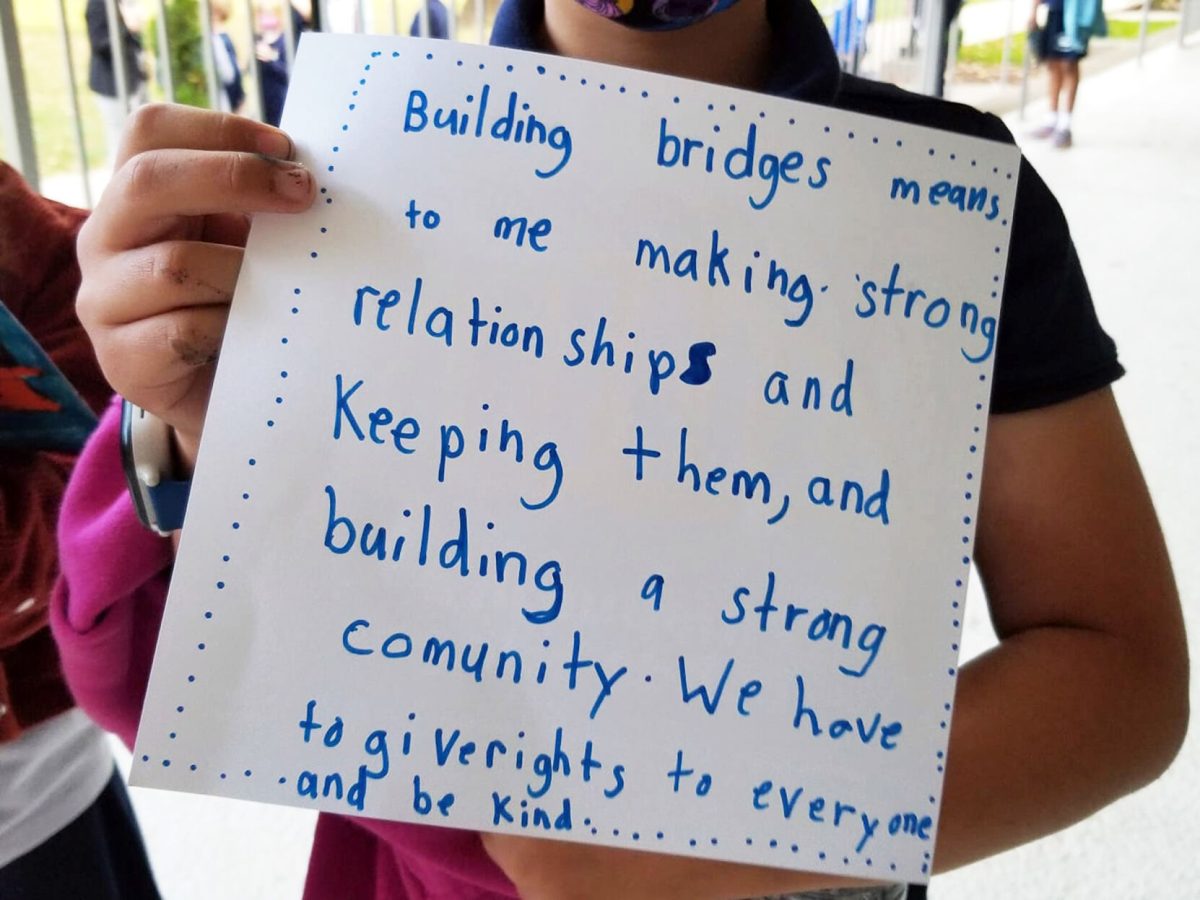 Building bridges means
to me making strong
relationships and
Keeping them, and
building a strong
comunity. We have
to give rights to everyone
and be kind.